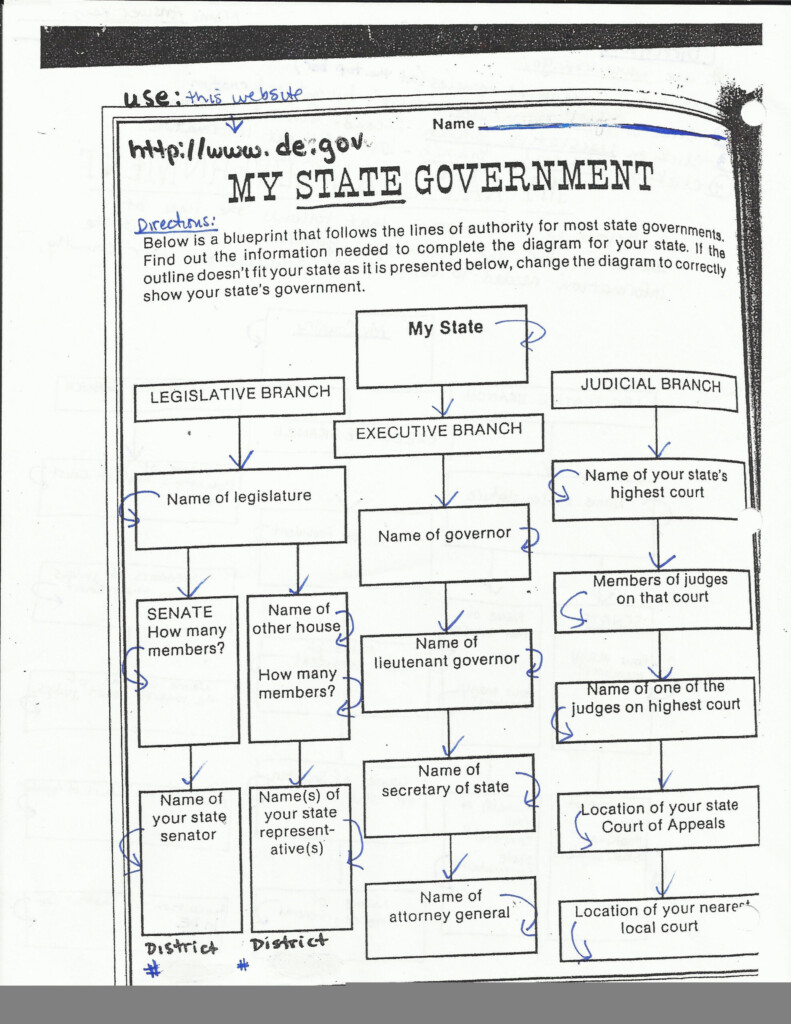 use: this website
Name
http://www.de.gov
MY STATE GOVERNMENT
Directions:
Below is a blueprint that follows the lines of authority for most state governments.
Find out the information needed to complete the diagram for your state. If the
outline doesn't fit your state as it is presented below, change the diagram to correctly
show your state's government.
My State
LEGISLATIVE BRANCH
EXECUTIVE BRANCH
JUDICIAL BRANCH
Name of legislature
SENATE
How many
members?
Name of
other house
How many
members?
Name of
your state
senator
Name(s) of
your state
represent-
ative(s)
District
#
District
#
Name of governor
Name of
lieutenant governor
Name of
secretary of state
Name of
attorney general
Name of your state's
highest court
Members of judges
on that court
Name of one of the
judges on highest court
Location of your state
Court of Appeals
Location of your nearest
local court